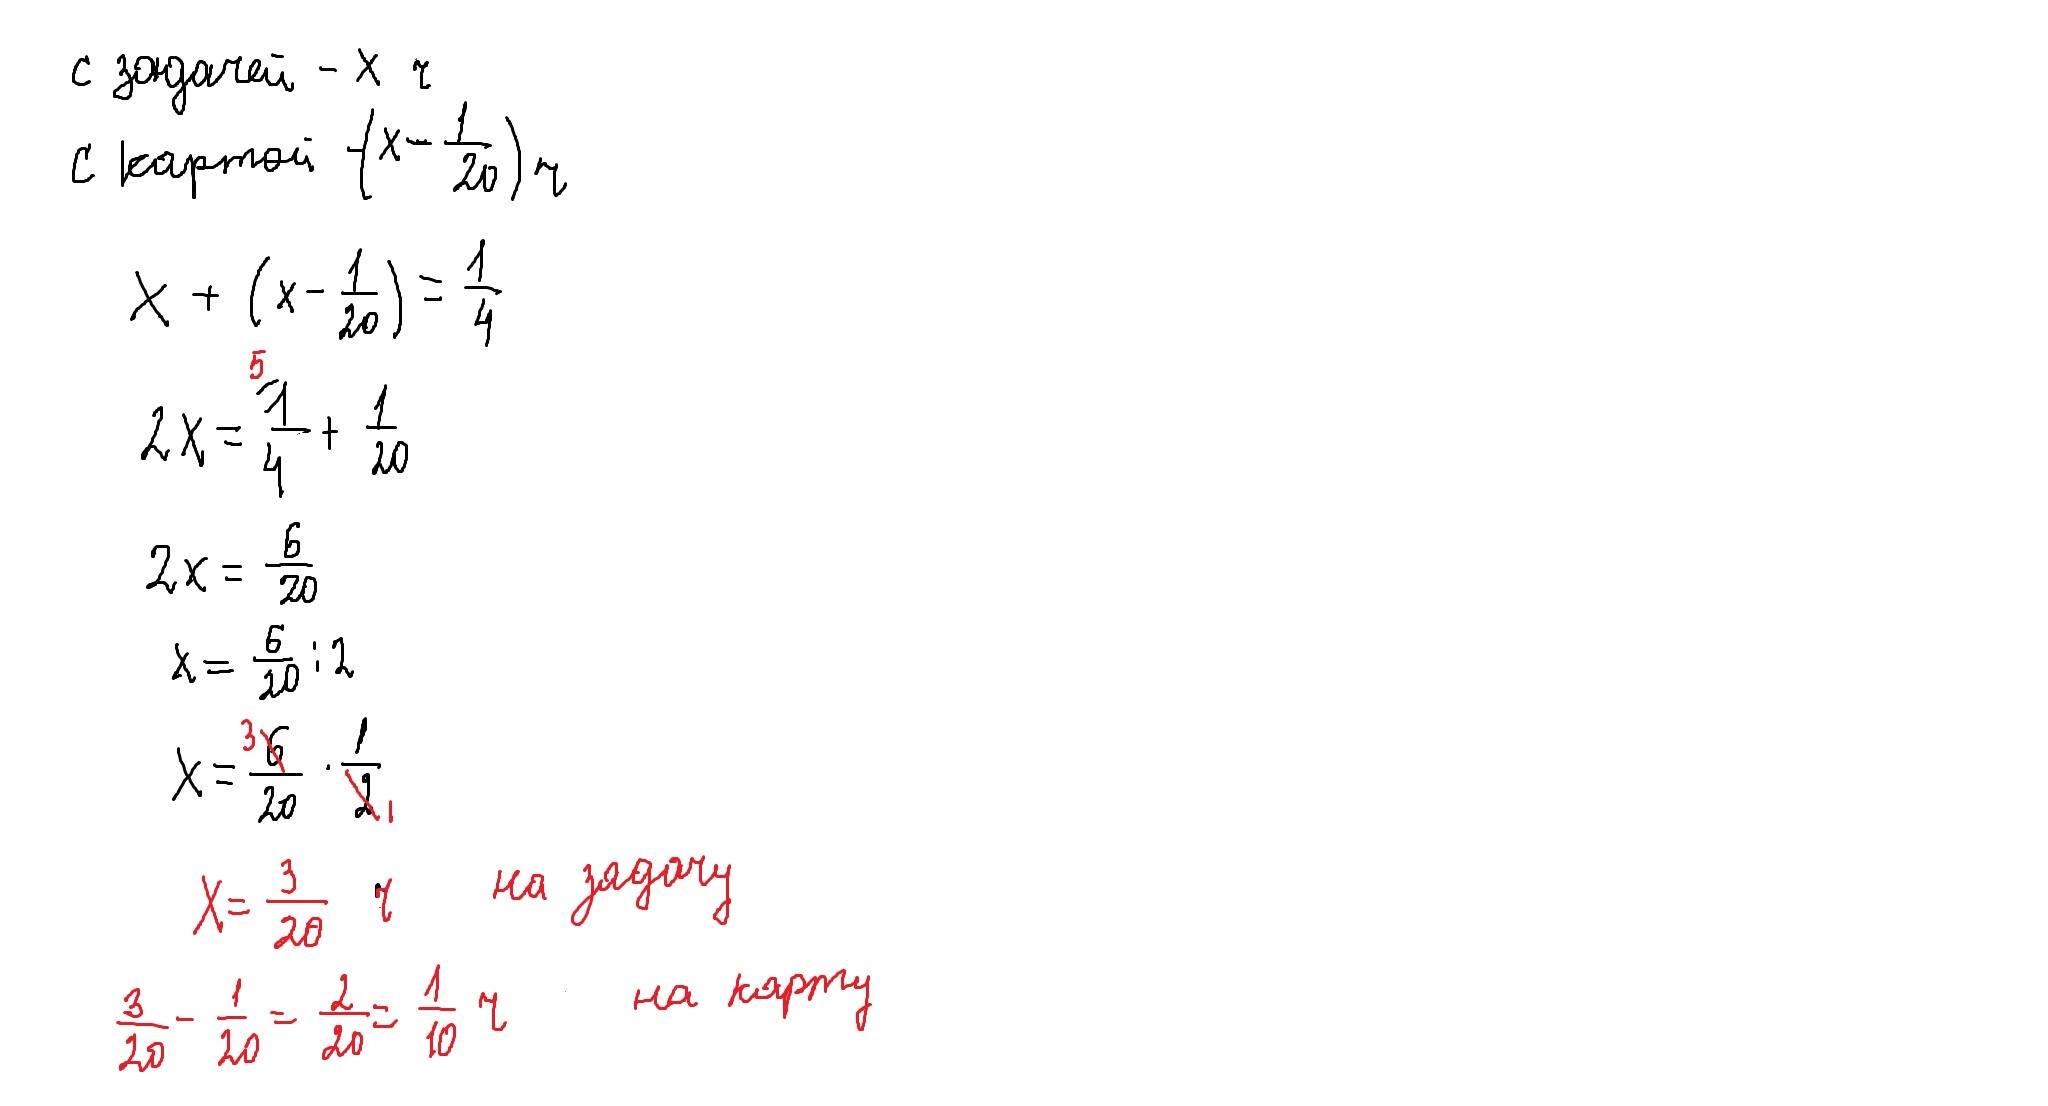 с задачей - x ч
с картой - (x - 1/20) ч
x + (x - 1/20) = 1/4
5
2x = 1/4 + 1/20
2x = 6/20
x = 6/20 : 2
x = 3 6/20 · 1/2 1
x = 3/20 ч на задачу
3/20 - 1/20 = 2/20 = 1/10 ч на карту